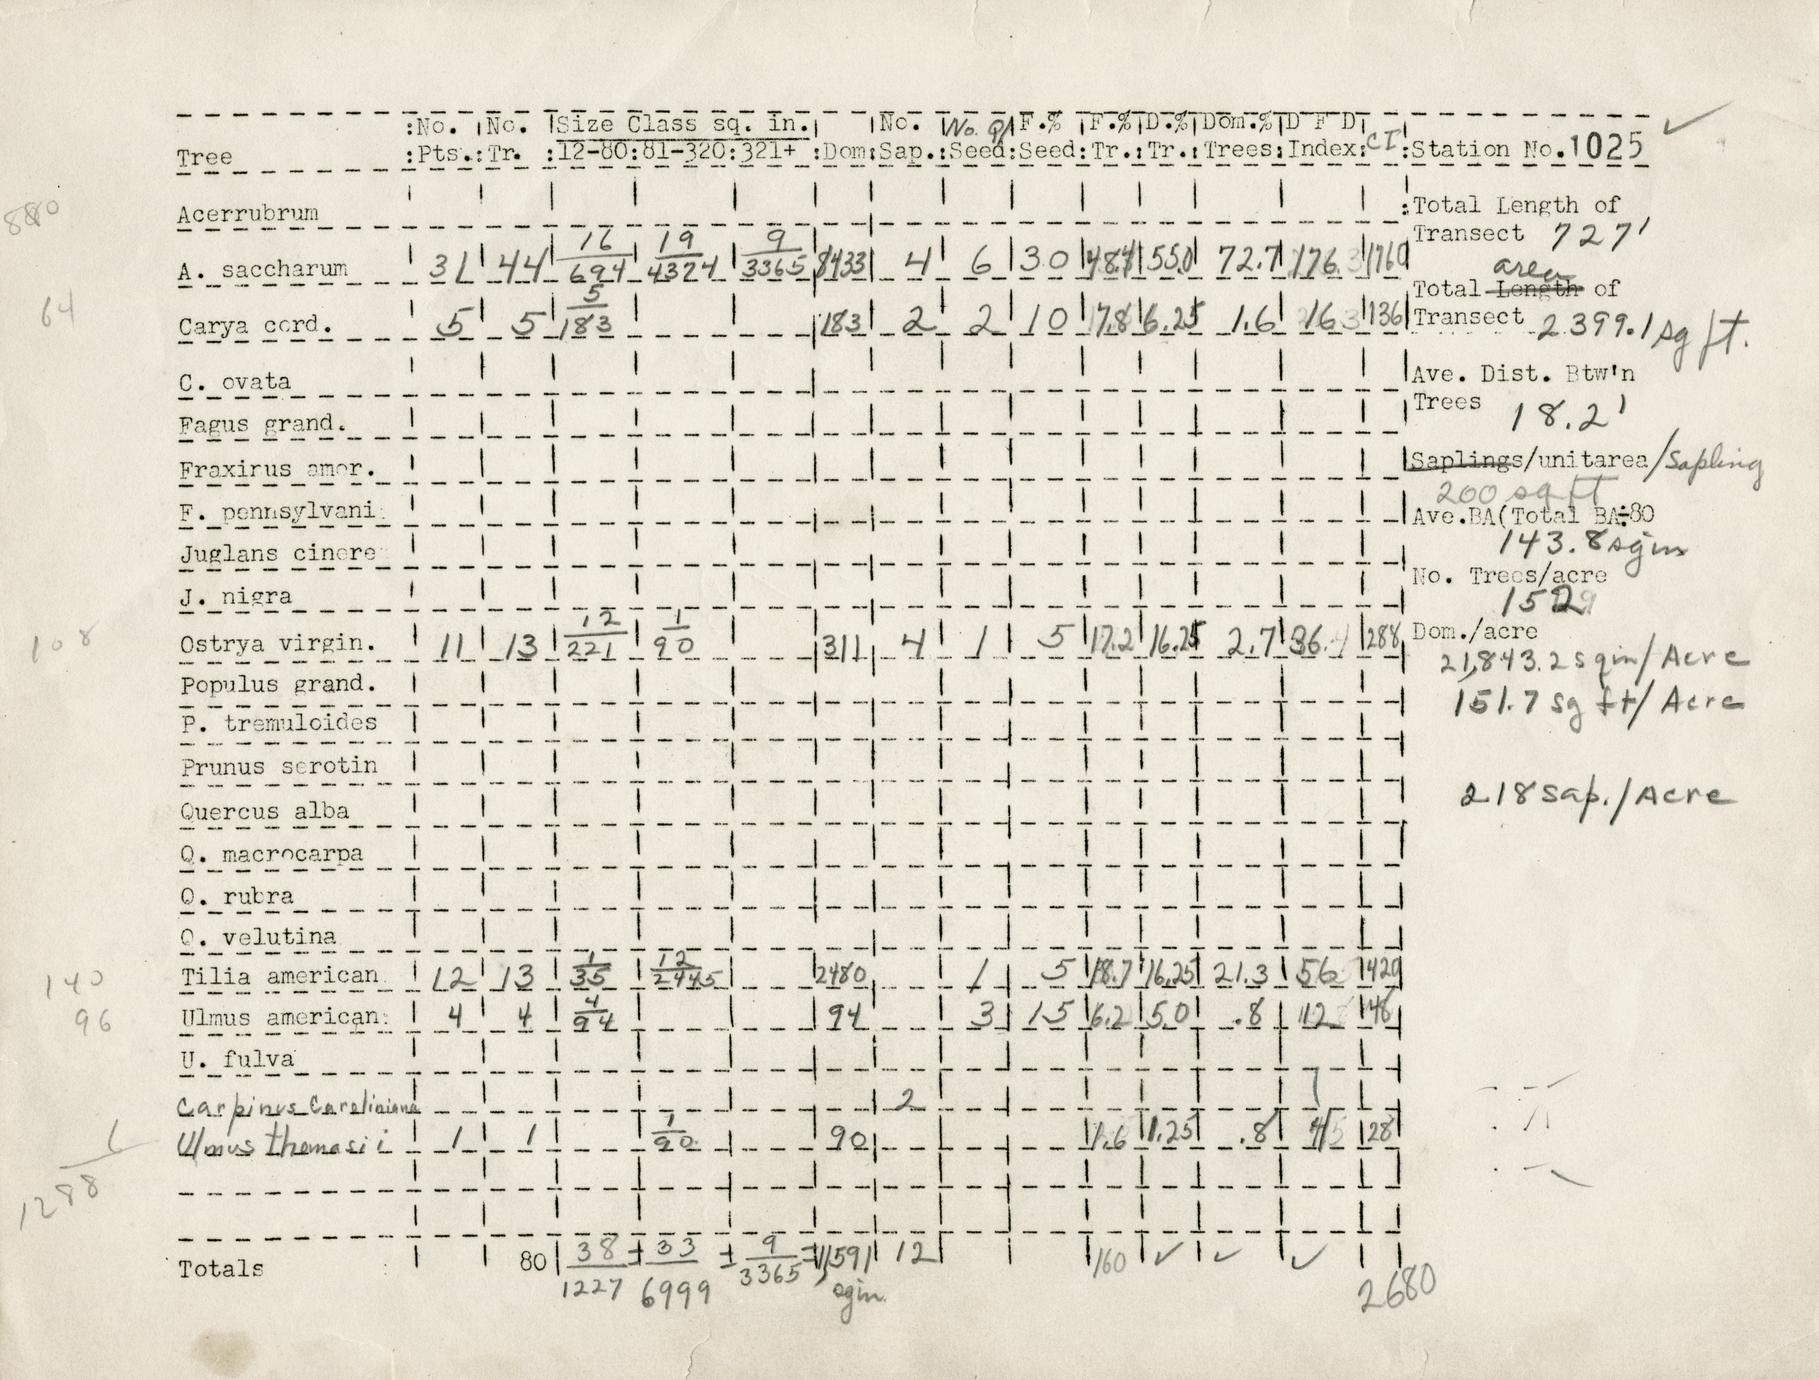 :No. No. Size Class sq. in. No. No. of F.% F.% D.% Dom.% D F D
Tree :Pts.:Tr. :12-80:81-320:321+ :Dom:Sap.:Seed:Seed:Tr.:Tr.:Trees:Index: CI :Station No.1025 ✓
Acerrubrum :Total Length of
880
Transect 727'
16 19 9
A. saccharum 31 44 694 4324 3365 8433 4 6 30 48.4 55.0 72.7 176.3 1760
area
Total Length of
64
5
Carya cord. 5 5 183 183 2 2 10 7.8 6.25 1.6 16 136
Transect 2399.1 sq ft.
C. ovata Ave. Dist. Btw'n
Trees 18.2'
Fagus grand.
Fraxirus amer. Saplings/unitarea/Sapling
200 sq ft
F. pennsylvani: Ave.BA(Total BA÷80
143.8 sqin
Juglans cinere
No. Trees/acre
J. nigra 152
12 1
108 Ostrya virgin. 11 13 221 90 311 4 1 5 17.2 16.25 2.7 36. 288 Dom./acre
21,843.2 sqin/Acre
Populus grand.
151.7 sq ft/Acre
P. tremuloides
Prunus serotin
218 sap./Acre
Quercus alba
Q. macrocarpa
Q. rubra
Q. velutina
1 12
140 Tilia american 12 13 35 2445 2480 1 5 18.7 16.25 21.3 56 420
4
96 Ulmus american: 4 4 94 94 3 15 6.2 5.0 .8 12 148
U. fulva
Carpinus Caroliniana 2
1
Ulmus thomasii 1 1 90 90 1.6 1.25 .8 4 28
1288
Totals 80 38 + 33 + 9 = 11,591 12 160 ✓ ✓ ✓
1227 6999 3365 sqin. 2680